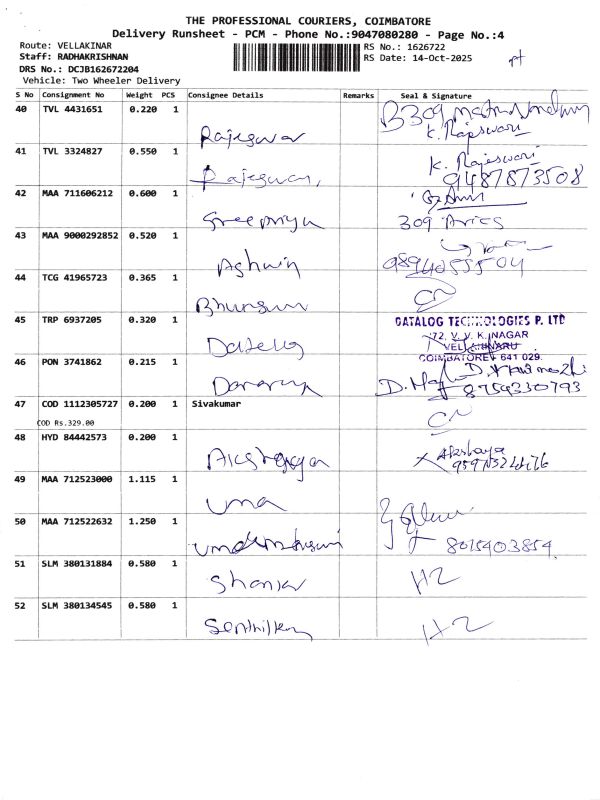 THE PROFESSIONAL COURIERS, COIMBATORE
Delivery Runsheet - PCM - Phone No.:9047080280 - Page No.:4
Route: VELLAKINAR RS No.: 1626722
Staff: RADHAKRISHNAN RS Date: 14-Oct-2025
DRS No.: DCJB162672204
Vehicle: Two Wheeler Delivery
S No Consignment No Weight PCS Consignee Details Remarks Seal & Signature
40 TVL 4431651 0.220 1 Rajeswar B 309
K. Rajeswari
41 TVL 3324827 0.550 1 Rajeswari K. Rajeswari
9487873508
42 MAA 711606212 0.600 1 Sreepriya 309 Aries
43 MAA 9000292852 0.520 1 Ashwin
9894055504
44 TCG 41965723 0.365 1 CN
45 TRP 6937205 0.320 1 DATALOG TECHNOLOGIES P. LTD
72, V. V. K. NAGAR
VELLAKINARU
COIMBATORE 641 029.
46 PON 3741862 0.215 1
8759330793
47 COD 1112305727 0.200 1 Sivakumar CN
COD Rs.329.00
48 HYD 84442573 0.200 1 Akshaya
49 MAA 712523000 1.115 1 Uma
50 MAA 712522632 1.250 1 8015403854
51 SLM 380131884 0.580 1 Shankar H2
52 SLM 380134545 0.580 1 Senthilkumar H2